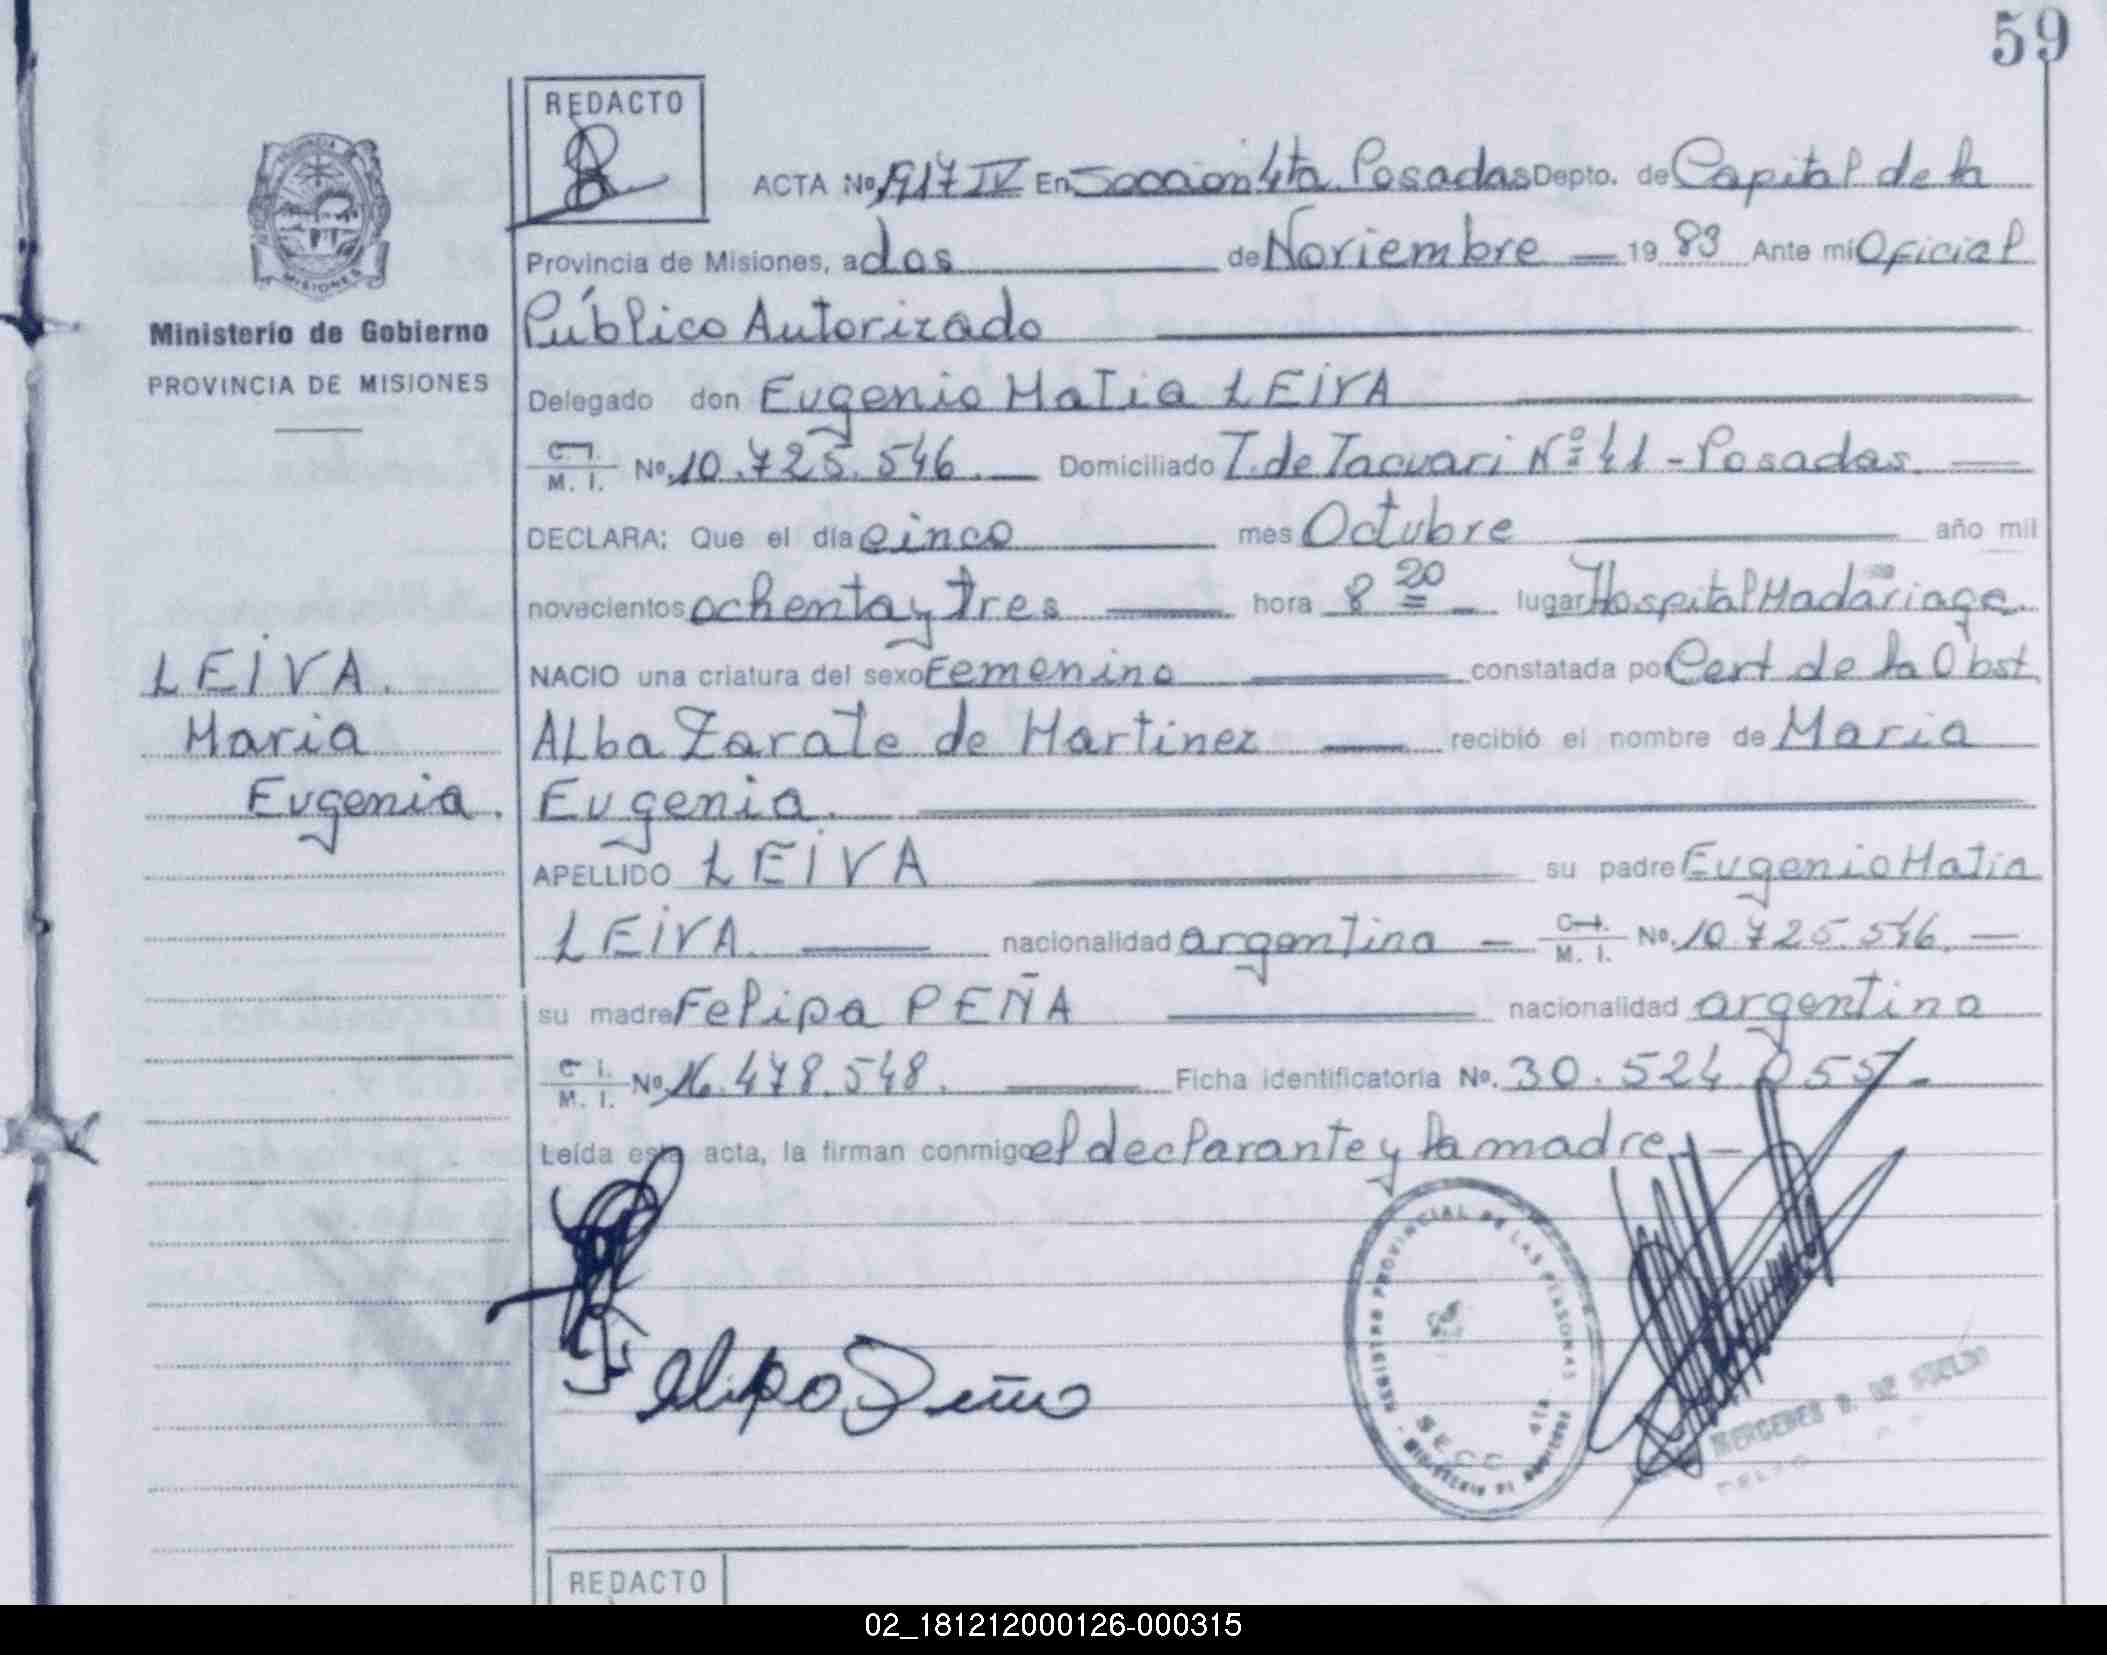 59
REDACTO
ACTA No 1917 IV En Sección 4ta. Posadas Depto. de Capital de la
Provincia de Misiones, a dos de Noviembre 19 83 Ante mi Oficial
Público Autorizado
Delegado don Eugenio Matia LEIVA
C. I. M. I. No. 10.725.546. Domiciliado T. de Tacuari Nº 41 - Posadas.
DECLARA: Que el día cinco mes Octubre año mil
novecientos ochenta y tres hora 8 20 lugar Hospital Madariaga.
NACIO una criatura del sexo Femenino constatada por Cert de la Obst.
Alba Zarate de Martinez recibió el nombre de Maria
Eugenia.
APELLIDO LEIVA su padre Eugenio Matia
LEIVA. nacionalidad argentina C. I. M. I. No. 10.725.546.
su madre Felipa PEÑA nacionalidad argentina
C. I. M. I. No. 16.478.548. Ficha identificatoria No. 30.524.055.-
Leída esta acta, la firman conmigo el declarante y la madre.-
Felipa Peña
REGISTRO PROVINCIAL DE LAS PERSONAS
SECC. 4ta.
MINISTERIO DE GOBIERNO
MERCEDES
MISIONES
Ministerio de Gobierno
PROVINCIA DE MISIONES
LEIVA.
Maria
Eugenia.
REDACTO
02_181212000126-000315